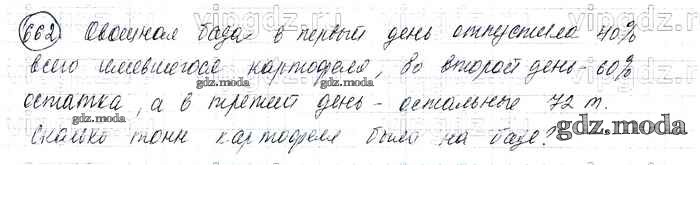 vipgdz.m vipgdz.m vipgdz.m
662 Овощная база в первый день отпустила 40%
всего имевшегося картофеля, во второй день - 60%
gdz.moda gdz.moda
остатка, а в третий день - остальные 72 т.
gdz.moda gdz.moda
Сколько тонн картофеля было на базе?
gdz.moda